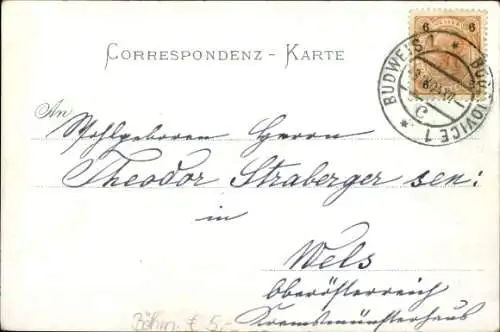 6 6
BUDWEIS 1 * BUDĚJOVICE 1 *
C
CORRESPONDENZ - KARTE
An
Wohlgeboren Herrn
Theodor Straberger sen:
in
Wels
Oberösterreich
Kremsmünsterhaus
Böhm. € 5,-